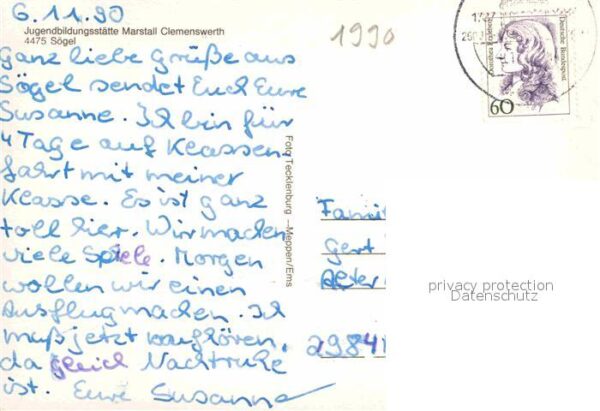 6.11.90
1990
Jugendbildungsstätte Marstall Clemenswerth
4475 Sögel
Ganz liebe Grüße aus
Sögel sendet Euch Eure
Susanne. Ich bin für
4 Tage auf Klassen
fahrt mit meiner
Klasse. Es ist ganz
toll hier. Wir machen
viele Spiele. Morgen
wollen wir einen
Ausflug machen. Ich
muß jetzt aufhören,
da gleich Nachtruhe
ist. Eure Susanne
Foto Tecklenburg – Meppen/Ems
Deutsche Bundespost
60
Famil
Gert
Alter
2984
privacy protection
Datenschutz